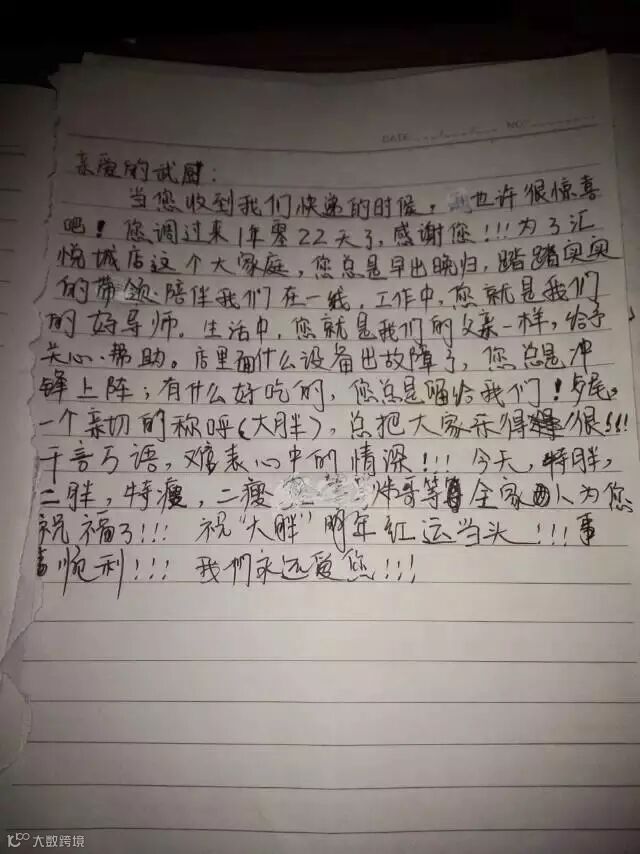 DATE NO
亲爱的武厨：
当您收到我们快递的时候，也许很惊喜
吧！您调过来1年零22天了，感谢您！！！为了汇
悦城店这个大家庭，您总是早出晚归，踏踏实实
的带领、陪伴我们在一线，工作中，您就是我们
的好导师。生活中，您就是我们的父亲一样，给予
关心、帮助。店里面什么设备出故障了，您总是冲
锋上阵；有什么好吃的，您总是留给我们！
一个亲切的称呼（大胖），总把大家乐得很！！！
千言万语，难表心中的情深！！！今天，特胖，
二胖，特瘦，二瘦 伟哥等 全家人为您
祝福了！！！祝“大胖”明年红运当头！！！事
事顺利！！！我们永远爱您！！！
大数跨境